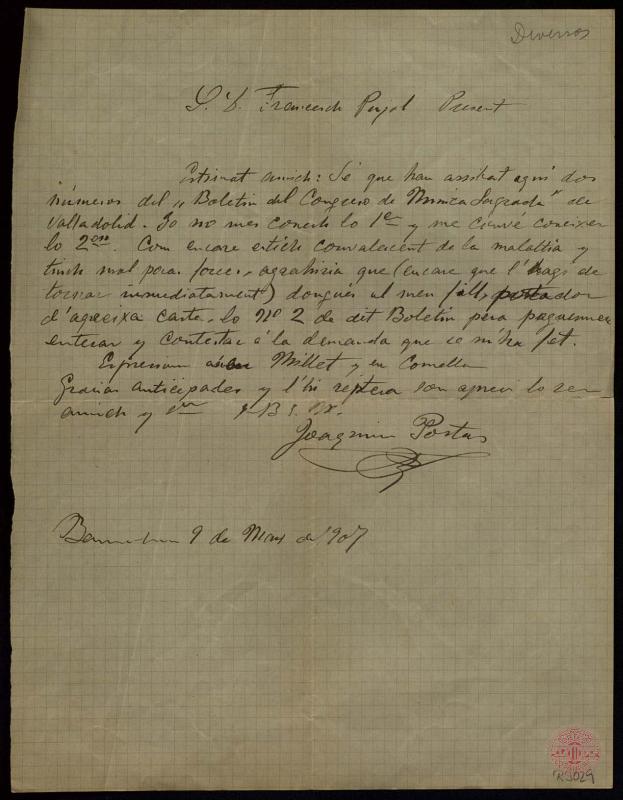 Diversos
S. D. Francesch Pujol Present
Estimat amich: Sé que han arribat aquí dos
números del "Boletin del Congreso de Musica Sagrada" de
Valladolid. Jo no mes conech lo 1er y me convé coneixer
lo 2on. Com encare estich convalescent de la malaltia y
tinch mal peras forces, agrahiria que (encare que l'hagi de
tornar inmediatament) dongués al meu fill, portador
d'aqueixa carta, lo Nº 2 de dit Boletin pera puguerme
enterar y contestar á la demanda que se m'ha fet.
Expressions Millet y en Comella
Gracias anticipades y l'hi son apreci lo seu
amich y
Joaquim Portas
Barcelona 9 de Mars de 1907
R.J029